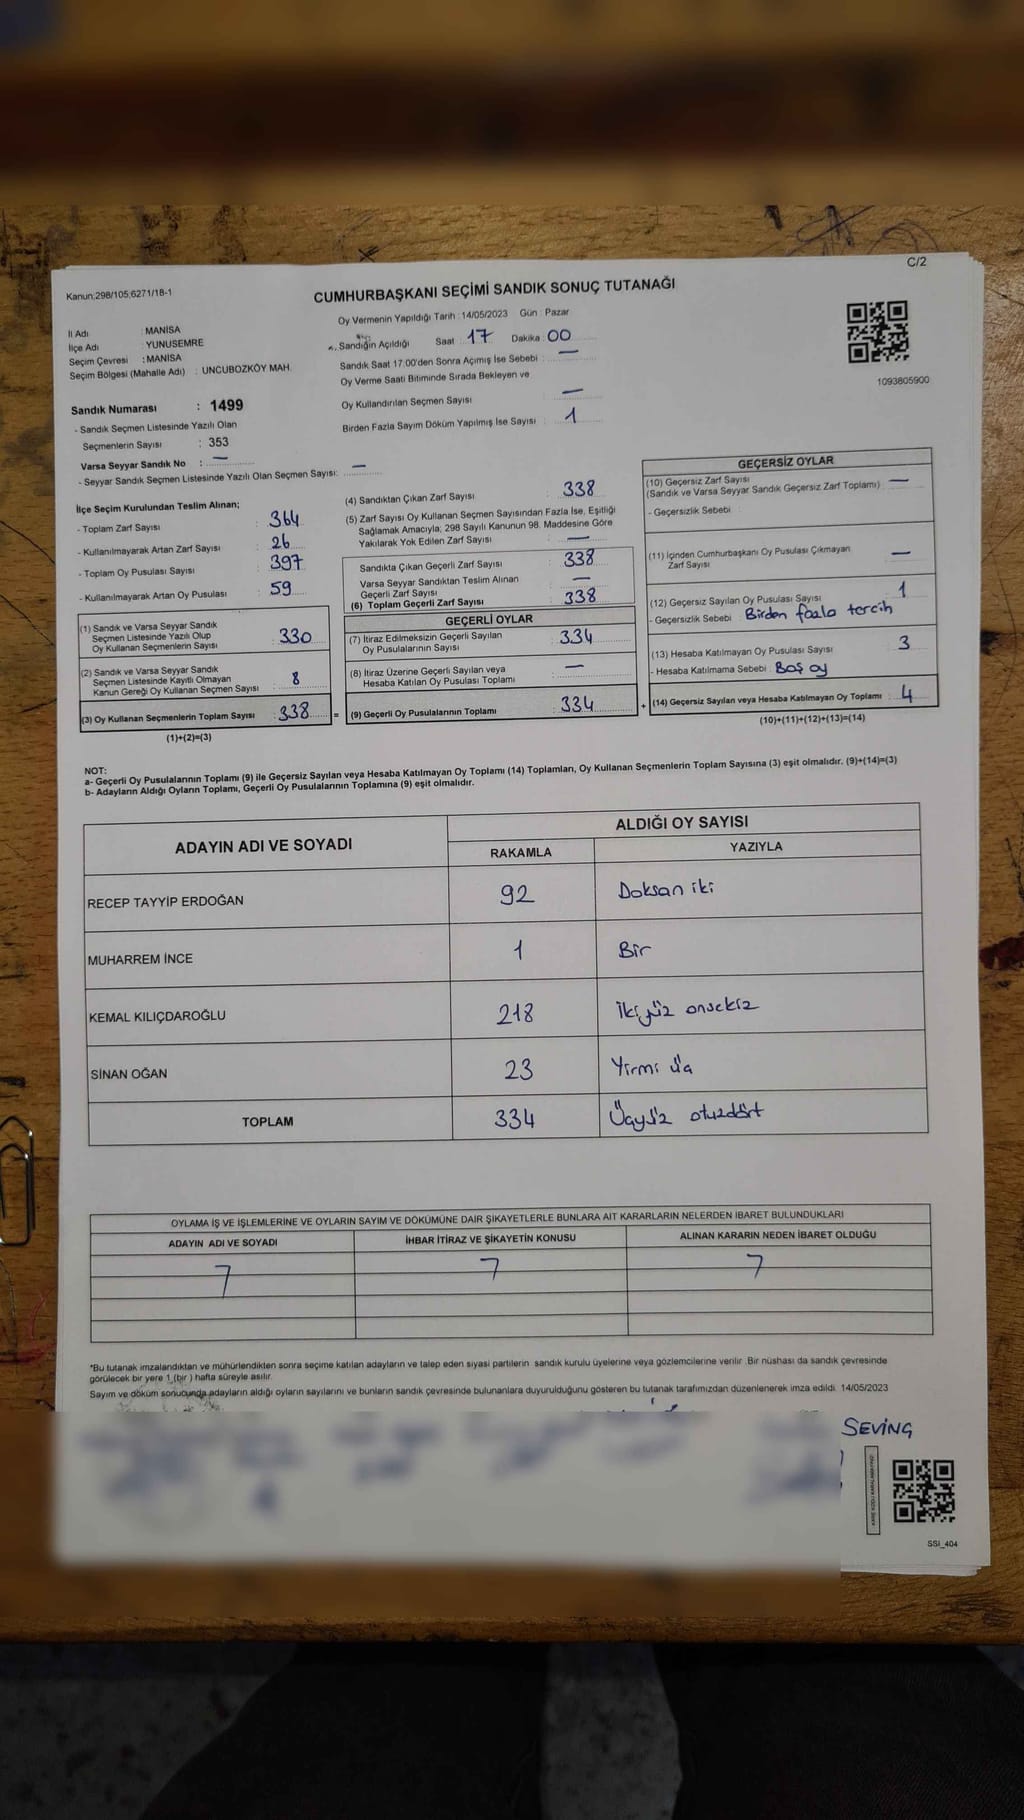 C/2
Kanun;298/105;6271/18-1
CUMHURBAŞKANI SEÇİMİ SANDIK SONUÇ TUTANAĞI
Oy Vermenin Yapıldığı Tarih : 14/05/2023 Gün : Pazar
İl Adı : MANİSA
İlçe Adı : YUNUSEMRE
Seçim Çevresi : MANİSA
Seçim Bölgesi (Mahalle Adı) : UNCUBOZKÖY MAH.
Sandık Numarası : 1499
- Sandık Seçmen Listesinde Yazılı Olan
Seçmenlerin Sayısı : 353
Varsa Seyyar Sandık No : —
- Seyyar Sandık Seçmen Listesinde Yazılı Olan Seçmen Sayısı: —
Sandığın Açıldığı Saat 17 Dakika 00
Sandık Saat 17:00'den Sonra Açımış İse Sebebi : —
Oy Verme Saati Bitiminde Sırada Bekleyen ve
Oy Kullandırılan Seçmen Sayısı —
Birden Fazla Sayım Döküm Yapılmış İse Sayısı : 1
1093805900
İlçe Seçim Kurulundan Teslim Alınan;
- Toplam Zarf Sayısı : 364
- Kullanılmayarak Artan Zarf Sayısı : 26
- Toplam Oy Pusulası Sayısı : 397
- Kullanılmayarak Artan Oy Pusulası : 59
(1) Sandık ve Varsa Seyyar Sandık
Seçmen Listesinde Yazılı Olup
Oy Kullanan Seçmenlerin Sayısı : 330
(2) Sandık ve Varsa Seyyar Sandık
Seçmen Listesinde Kayıtlı Olmayan
Kanun Gereği Oy Kullanan Seçmen Sayısı : 8
(3) Oy Kullanan Seçmenlerin Toplam Sayısı : 338
(1)+(2)=(3)
(4) Sandıktan Çıkan Zarf Sayısı : 338
(5) Zarf Sayısı Oy Kullanan Seçmen Sayısından Fazla İse, Eşitliği
Sağlamak Amacıyla; 298 Sayılı Kanunun 98. Maddesine Göre
Yakılarak Yok Edilen Zarf Sayısı : —
Sandıkta Çıkan Geçerli Zarf Sayısı : 338
Varsa Seyyar Sandıktan Teslim Alınan
Geçerli Zarf Sayısı : —
(6) Toplam Geçerli Zarf Sayısı : 338
GEÇERLİ OYLAR
(7) İtiraz Edilmeksizin Geçerli Sayılan
Oy Pusulalarının Sayısı : 334
(8) İtiraz Üzerine Geçerli Sayılan veya
Hesaba Katılan Oy Pusulası Toplamı : —
= (9) Geçerli Oy Pusulalarının Toplamı : 334
GEÇERSİZ OYLAR
(10) Geçersiz Zarf Sayısı
(Sandık ve Varsa Seyyar Sandık Geçersiz Zarf Toplamı) : —
- Geçersizlik Sebebi :
(11) İçinden Cumhurbaşkanı Oy Pusulası Çıkmayan
Zarf Sayısı : —
(12) Geçersiz Sayılan Oy Pusulası Sayısı : 1
- Geçersizlik Sebebi : Birden fazla tercih
(13) Hesaba Katılmayan Oy Pusulası Sayısı : 3
- Hesaba Katılmama Sebebi : Boş oy
+ (14) Geçersiz Sayılan veya Hesaba Katılmayan Oy Toplamı : 4
(10)+(11)+(12)+(13)=(14)
NOT:
a- Geçerli Oy Pusulalarının Toplamı (9) ile Geçersiz Sayılan veya Hesaba Katılmayan Oy Toplamı (14) Toplamları, Oy Kullanan Seçmenlerin Toplam Sayısına (3) eşit olmalıdır. (9)+(14)=(3)
b- Adayların Aldığı Oyların Toplamı, Geçerli Oy Pusulalarının Toplamına (9) eşit olmalıdır.
ADAYIN ADI VE SOYADI ALDIĞI OY SAYISI
RAKAMLA YAZIYLA
RECEP TAYYİP ERDOĞAN 92 Doksan iki
MUHARREM İNCE 1 Bir
KEMAL KILIÇDAROĞLU 218 İkiyüz onsekiz
SİNAN OĞAN 23 Yirmi üç
TOPLAM 334 Üçyüz otuzdört
OYLAMA İŞ VE İŞLEMLERİNE VE OYLARIN SAYIM VE DÖKÜMÜNE DAİR ŞİKAYETLERLE BUNLARA AİT KARARLARIN NELERDEN İBARET BULUNDUKLARI
ADAYIN ADI VE SOYADI İHBAR İTİRAZ VE ŞİKAYETİN KONUSU ALINAN KARARIN NEDEN İBARET OLDUĞU
*Bu tutanak imzalandıktan ve mühürlendikten sonra seçime katılan adayların ve talep eden siyasi partilerin sandık kurulu üyelerine veya gözlemcilerine verilir. Bir nüshası da sandık çevresinde
görülecek bir yere 1 (bir ) hafta süreyle asılır.
Sayım ve döküm sonucunda adayların aldığı oyların sayılarını ve bunların sandık çevresinde bulunanlara duyurulduğunu gösteren bu tutanak tarafımızdan düzenlenerek imza edildi. 14/05/2023
SEVİNÇ
SSI_404